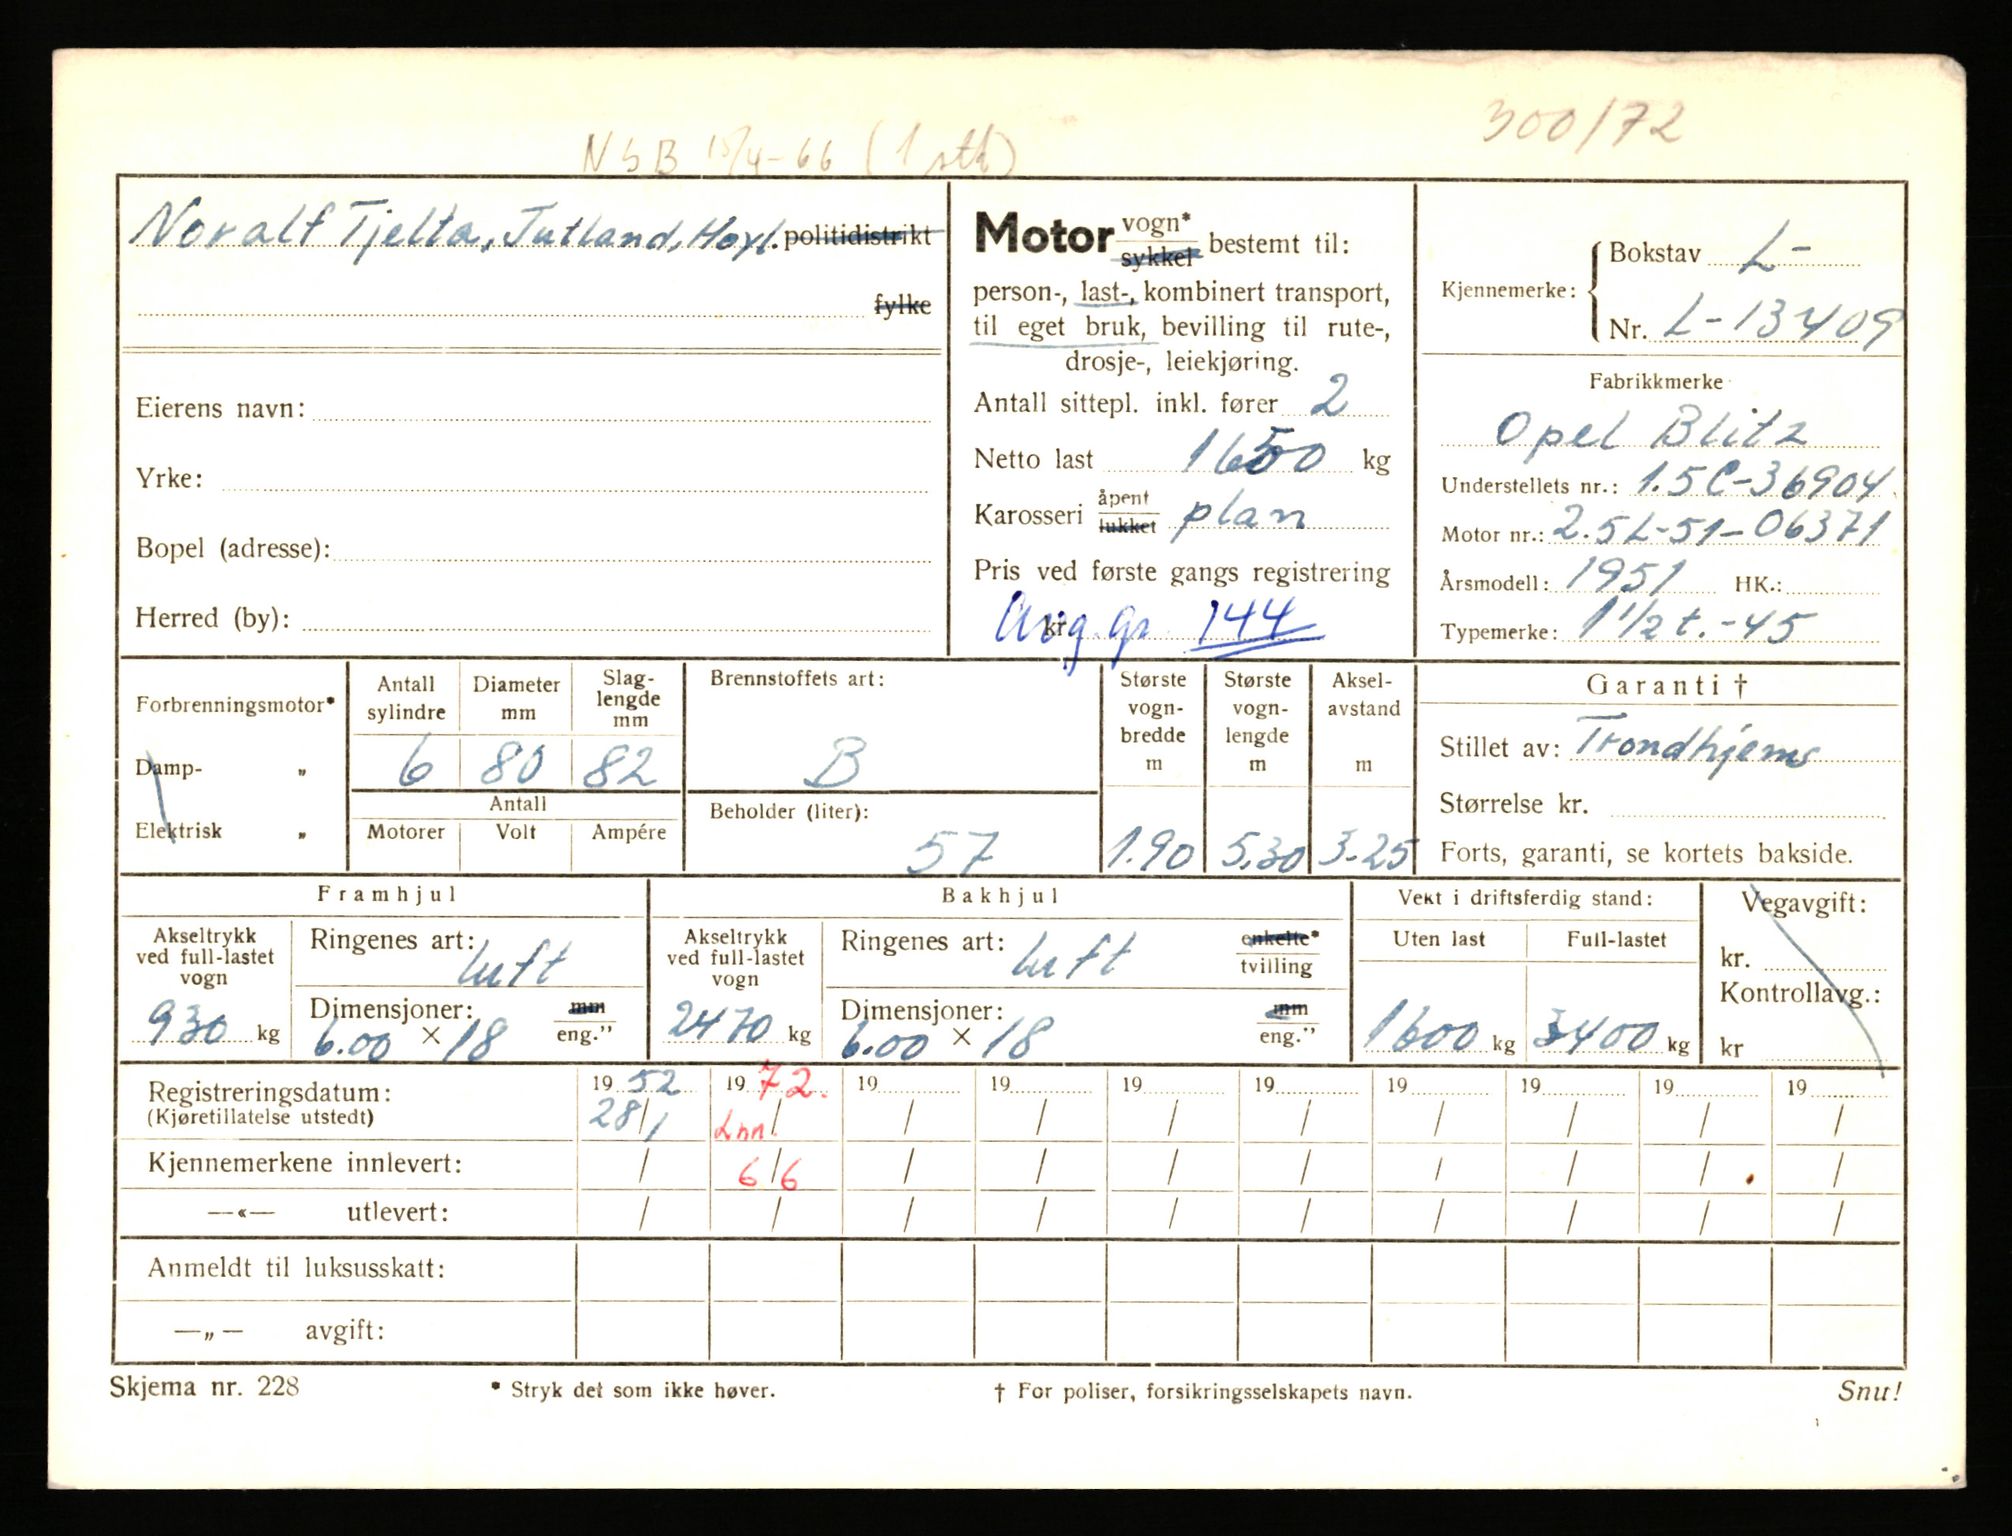 300/72
NSB 15/4-66 (1 stk)
Noralf Tjelta, Jutland, Høyl. politidistrikt
fylke
Eierens navn:
Yrke:
Bopel (adresse):
Herred (by):
Motor vogn* sykkel bestemt til:
person-, last-, kombinert transport,
til eget bruk, bevilling til rute-,
drosje-, leiekjøring.
Antall sittepl. inkl. fører 2
Netto last 1650 kg
Karosseri åpent lukket plan
Pris ved første gangs registrering
kr. Avg.gr. 144
Kjennemerke: Bokstav L-
Nr. L-13409
Fabrikkmerke
Opel Blitz
Understellets nr.: 1.5C-36904
Motor nr.: 2.5L-51-06371
Årsmodell: 1951 HK.:
Typemerke: 1 1/2 t.-45
Forbrenningsmotor*
Damp- „
Elektrisk „
Antall sylindre 6
Diameter mm 80
Slag-lengde mm 82
Antall
Motorer Volt Ampére
Brennstoffets art:
B
Beholder (liter):
57
Største vogn-bredde m 1.90
Største vogn-lengde m 5.30
Aksel-avstand m 3.25
Garanti †
Stillet av: Trondhjems
Størrelse kr.
Forts, garanti, se kortets bakside.
Framhjul
Akseltrykk ved full-lastet vogn
930 kg
Ringenes art: luft
Dimensjoner: mm
6.00 × 18 eng."
Bakhjul
Akseltrykk ved full-lastet vogn
2470 kg
Ringenes art: luft enkelte* tvilling
Dimensjoner: mm
6.00 × 18 eng."
Vekt i driftsferdig stand:
Uten last Full-lastet
1600 kg 3400 kg
Vegavgift:
kr.
Kontrollavg.:
kr
Registreringsdatum: 19 52 19 72. 19 19 19 19 19 19 19 19
(Kjøretillatelse utstedt) 28/1 Inn. / / / / / / / / /
Kjennemerkene innlevert: / 6/6 / / / / / / / /
—«— utlevert: / / / / / / / / / /
Anmeldt til luksusskatt:
—„— avgift:
Skjema nr. 228 * Stryk det som ikke høver. † For poliser, forsikringsselskapets navn. Snu!